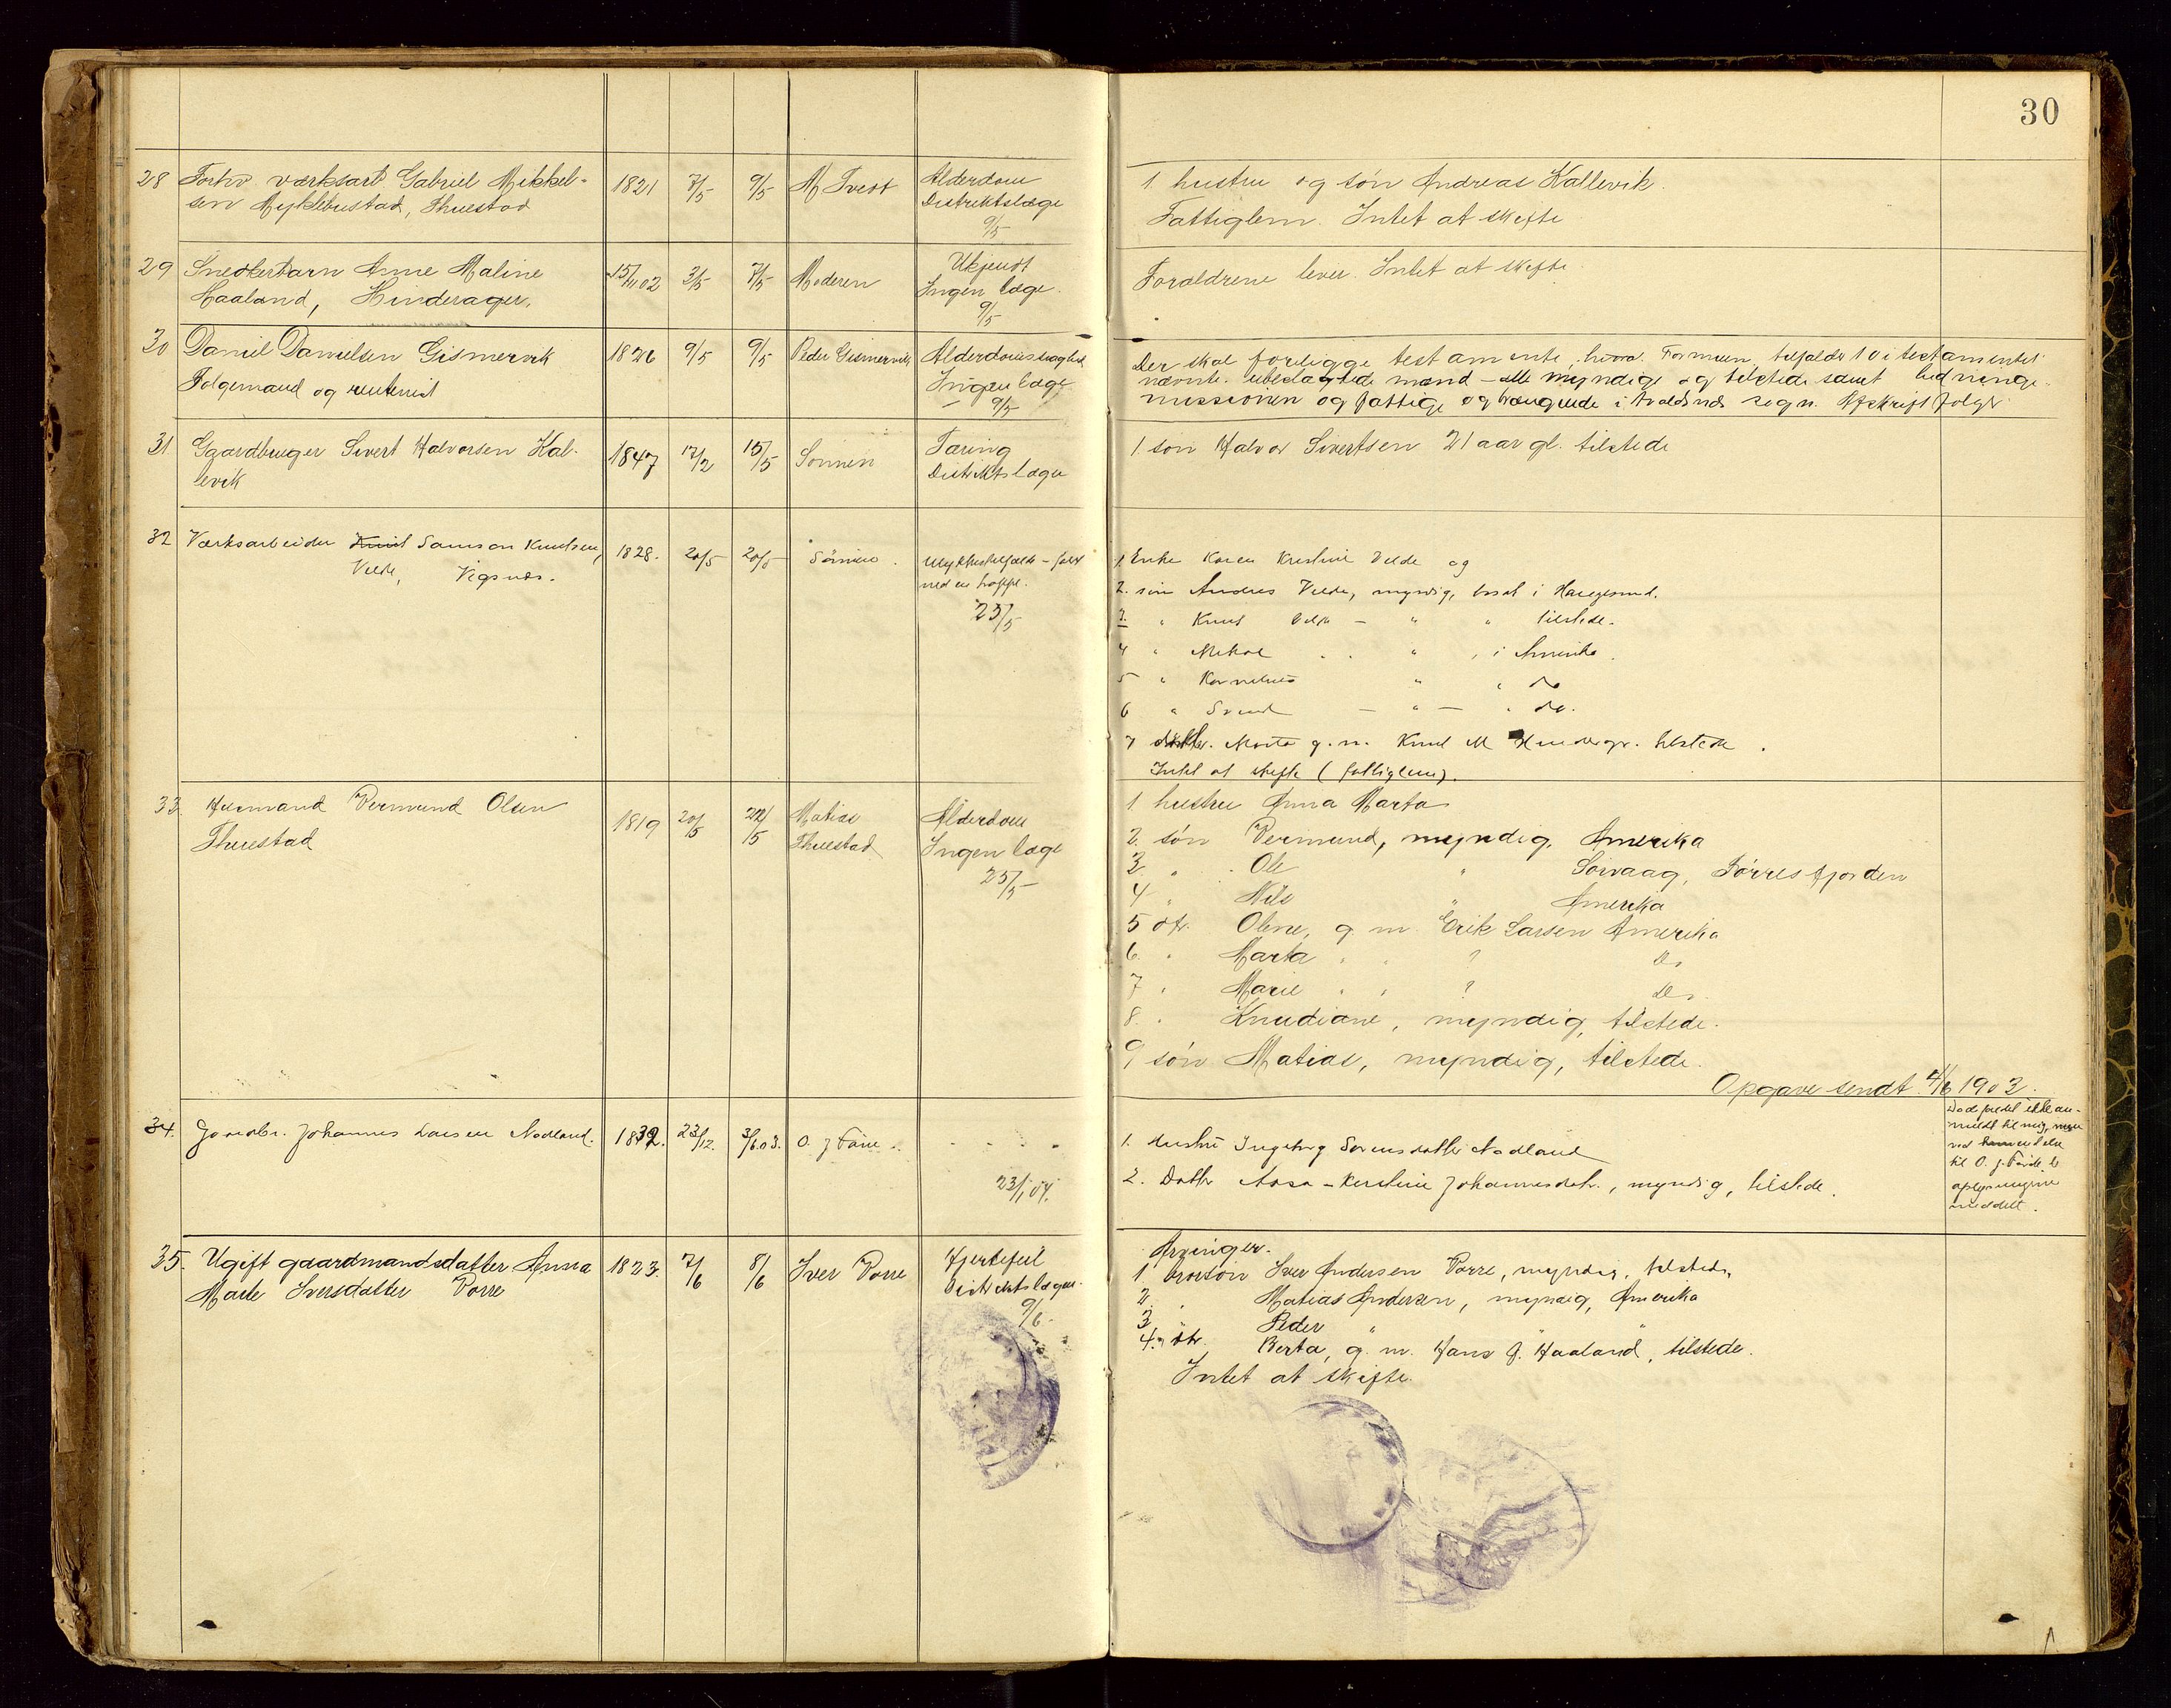 30
28 Forhv. værksarb Gabriel Mikkel-
sen Myklebustad, Thuestad
1821 7/5 9/5 M Tvedt
Alderdom
Distriktslæge
9/5
1. hustru og søn Andreas Kallevik.
Fattiglem. Intet at skifte
29 Snedkerbarn Anne Maline
Haaland, Hinderager.
15/11 02 3/5 7/5 Moderen
Ukjendt
Ingen læge.
9/5
Forældrene lever. Intet at skifte
30 Daniel Danielsen Gismervik
Folgemand og rentenist
1826 9/5 9/5 Peder Gismervik
Alderdomssvaghed
Ingen læge
9/5
Der skal foreligge testamente, hvorv. Formuen tilfalder 10 i testamentet
nævnte ubeslægtede mænd – alle myndige og tilstede samt hedninge-
missionen og fattige og trængende i Avaldsnes sogn. Afskrift følger
31 Gaardbruger Sivert Halvorsen Kal-
levik
1847 17/2 15/5 Sønnen
Tæring
Distriktslæge
1 søn Halvor Sivertsen 21 aar gl. tilstede
32 Værksarbeider Samson Knutsen,
Velde, Vigsnes.
1828. 20/5 20/5 Sønnen.
Ulykkestilfælde – falt
ned en trappe.
25/5
1. Enke Karen Kristine Velde og
2. søn Andreas Velde, myndig, bosat i Haugesund.
3. " Knut Velde — " " tilstede.
4 " Mikal " , i Amerika.
5 " Kornelius " " do
6 " Svend — " — " do.
7 datter. Marta g. m. Knud M Hinderager. tilstede.
Intet at skifte (fattiglem).
33. Husmand Vermund Olsen
Thuestad
1819 20/5 22/5
Matias
Thuestad
Alderdom
Ingen læge
25/5
1 hustru Anna Marta
2. søn Vermund, myndig, Amerika
3 " Ole " Sørvaag, Førresfjorden
4 " Nils " Amerika
5 dtr. Oline, g. m. Erik Larsen Amerika
6. " Marta " " ? Do
7 " Marie " " ? Do.
8. " Knudiane, myndig, tilstede.
9 søn Matias, myndig, tilstede.
Opgave sendt 4/6 1903.
34. Gaardbr. Johannes Larsen Nodland.
1832. 23/12. 3/6.03. O. J Førre.
23/1 04.
1. Hustru Ingeborg Sørensdatter Nodland
2. Datter Aasa-Kirstine Johannesdatr., myndig, tilstede.
Dødsfaldet ikke an-
meldt til mig, men
ved henvendelse
til O. J. Førde, er
oplysningerne
meddelt.
35. Ugift gaardmandsdatter Anna
Marte Iversdatter Vorre
1823. 7/6 8/6 Iver Vorre
Hjertefeil
Distriktslægen.
9/6.
Arvinger.
1 brorsøn Iver Andersen Vorre, myndig, tilstede,
2. " Matias Andersen, myndig, Amerika
3 " Peder " " "
4. " dtr. Berta, g. m. Hans J. Haaland, tilstede.
Intet at skifte.